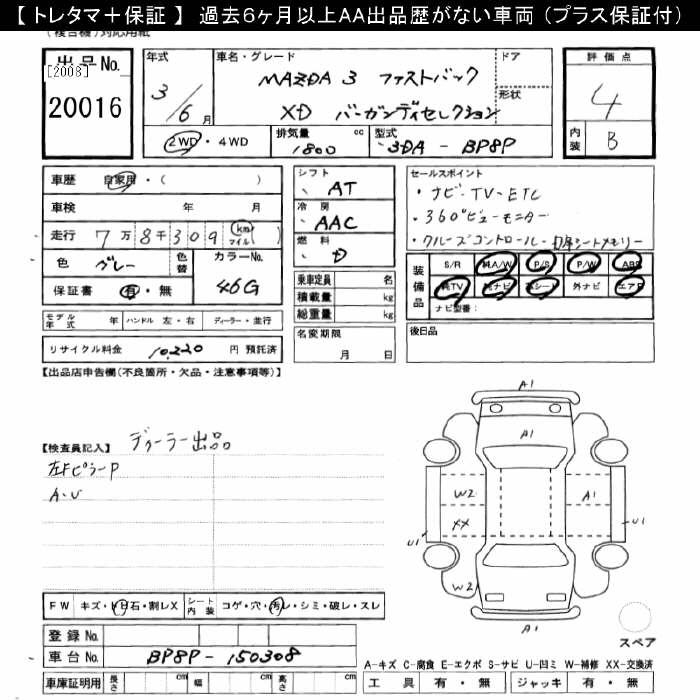 【トレタマ＋保証】 過去６ヶ月以上ＡＡ出品歴がない車両（プラス保証付）
(複合機)対応用紙
出品No. [2008] 20016
年式 3/6月
車名・グレード MAZDA 3 ファストバック
XD バーガンディセレクション
ドア
形状
評価点 4
内装 B
2WD・4WD
排気量 1800 cc
型式 3DA - BP8P
車歴 自家用・( )
車検 年 月
走行 7万8千309 km マイル ( )
色 グレー 色替
カラーNo. 46G
保証書 有・無
シフト AT
冷房 AAC
燃料 D
乗車定員 名
積載量 kg
総重量 kg
セールスポイント
・ナビ・TV・ETC
・360°ビューモニター
・クルーズコントロール・
シートメモリー
装備品 S/R A/W P/S P/W ABS
TV ナビ 革シート 外ナビ エアB
ナビ型番:
モデル年式 年 ハンドル 左・右 ディーラー・並行
リサイクル料金 10,220 円 預託済
名変期限 月 日
後日品
【出品店申告欄(不良箇所・欠品・注意事項等)】
【検査員記入】 ディーラー出品
左Fピラー P
A・U
A1
A1
W2
XX
A1
U1
U1
W2
A1
スペア
FW キズ・トビ石・割レX
シート内装 コゲ・穴・汚レ・シミ・破レ・スレ
登録No.
車台No. BP8P - 150308
車庫証明用 長さ cm 幅 cm 高さ cm
A-キズ C-腐食 E-エクボ S-サビ U-凹ミ W-補修 XX-交換済
工具 有・無 ジャッキ 有・無